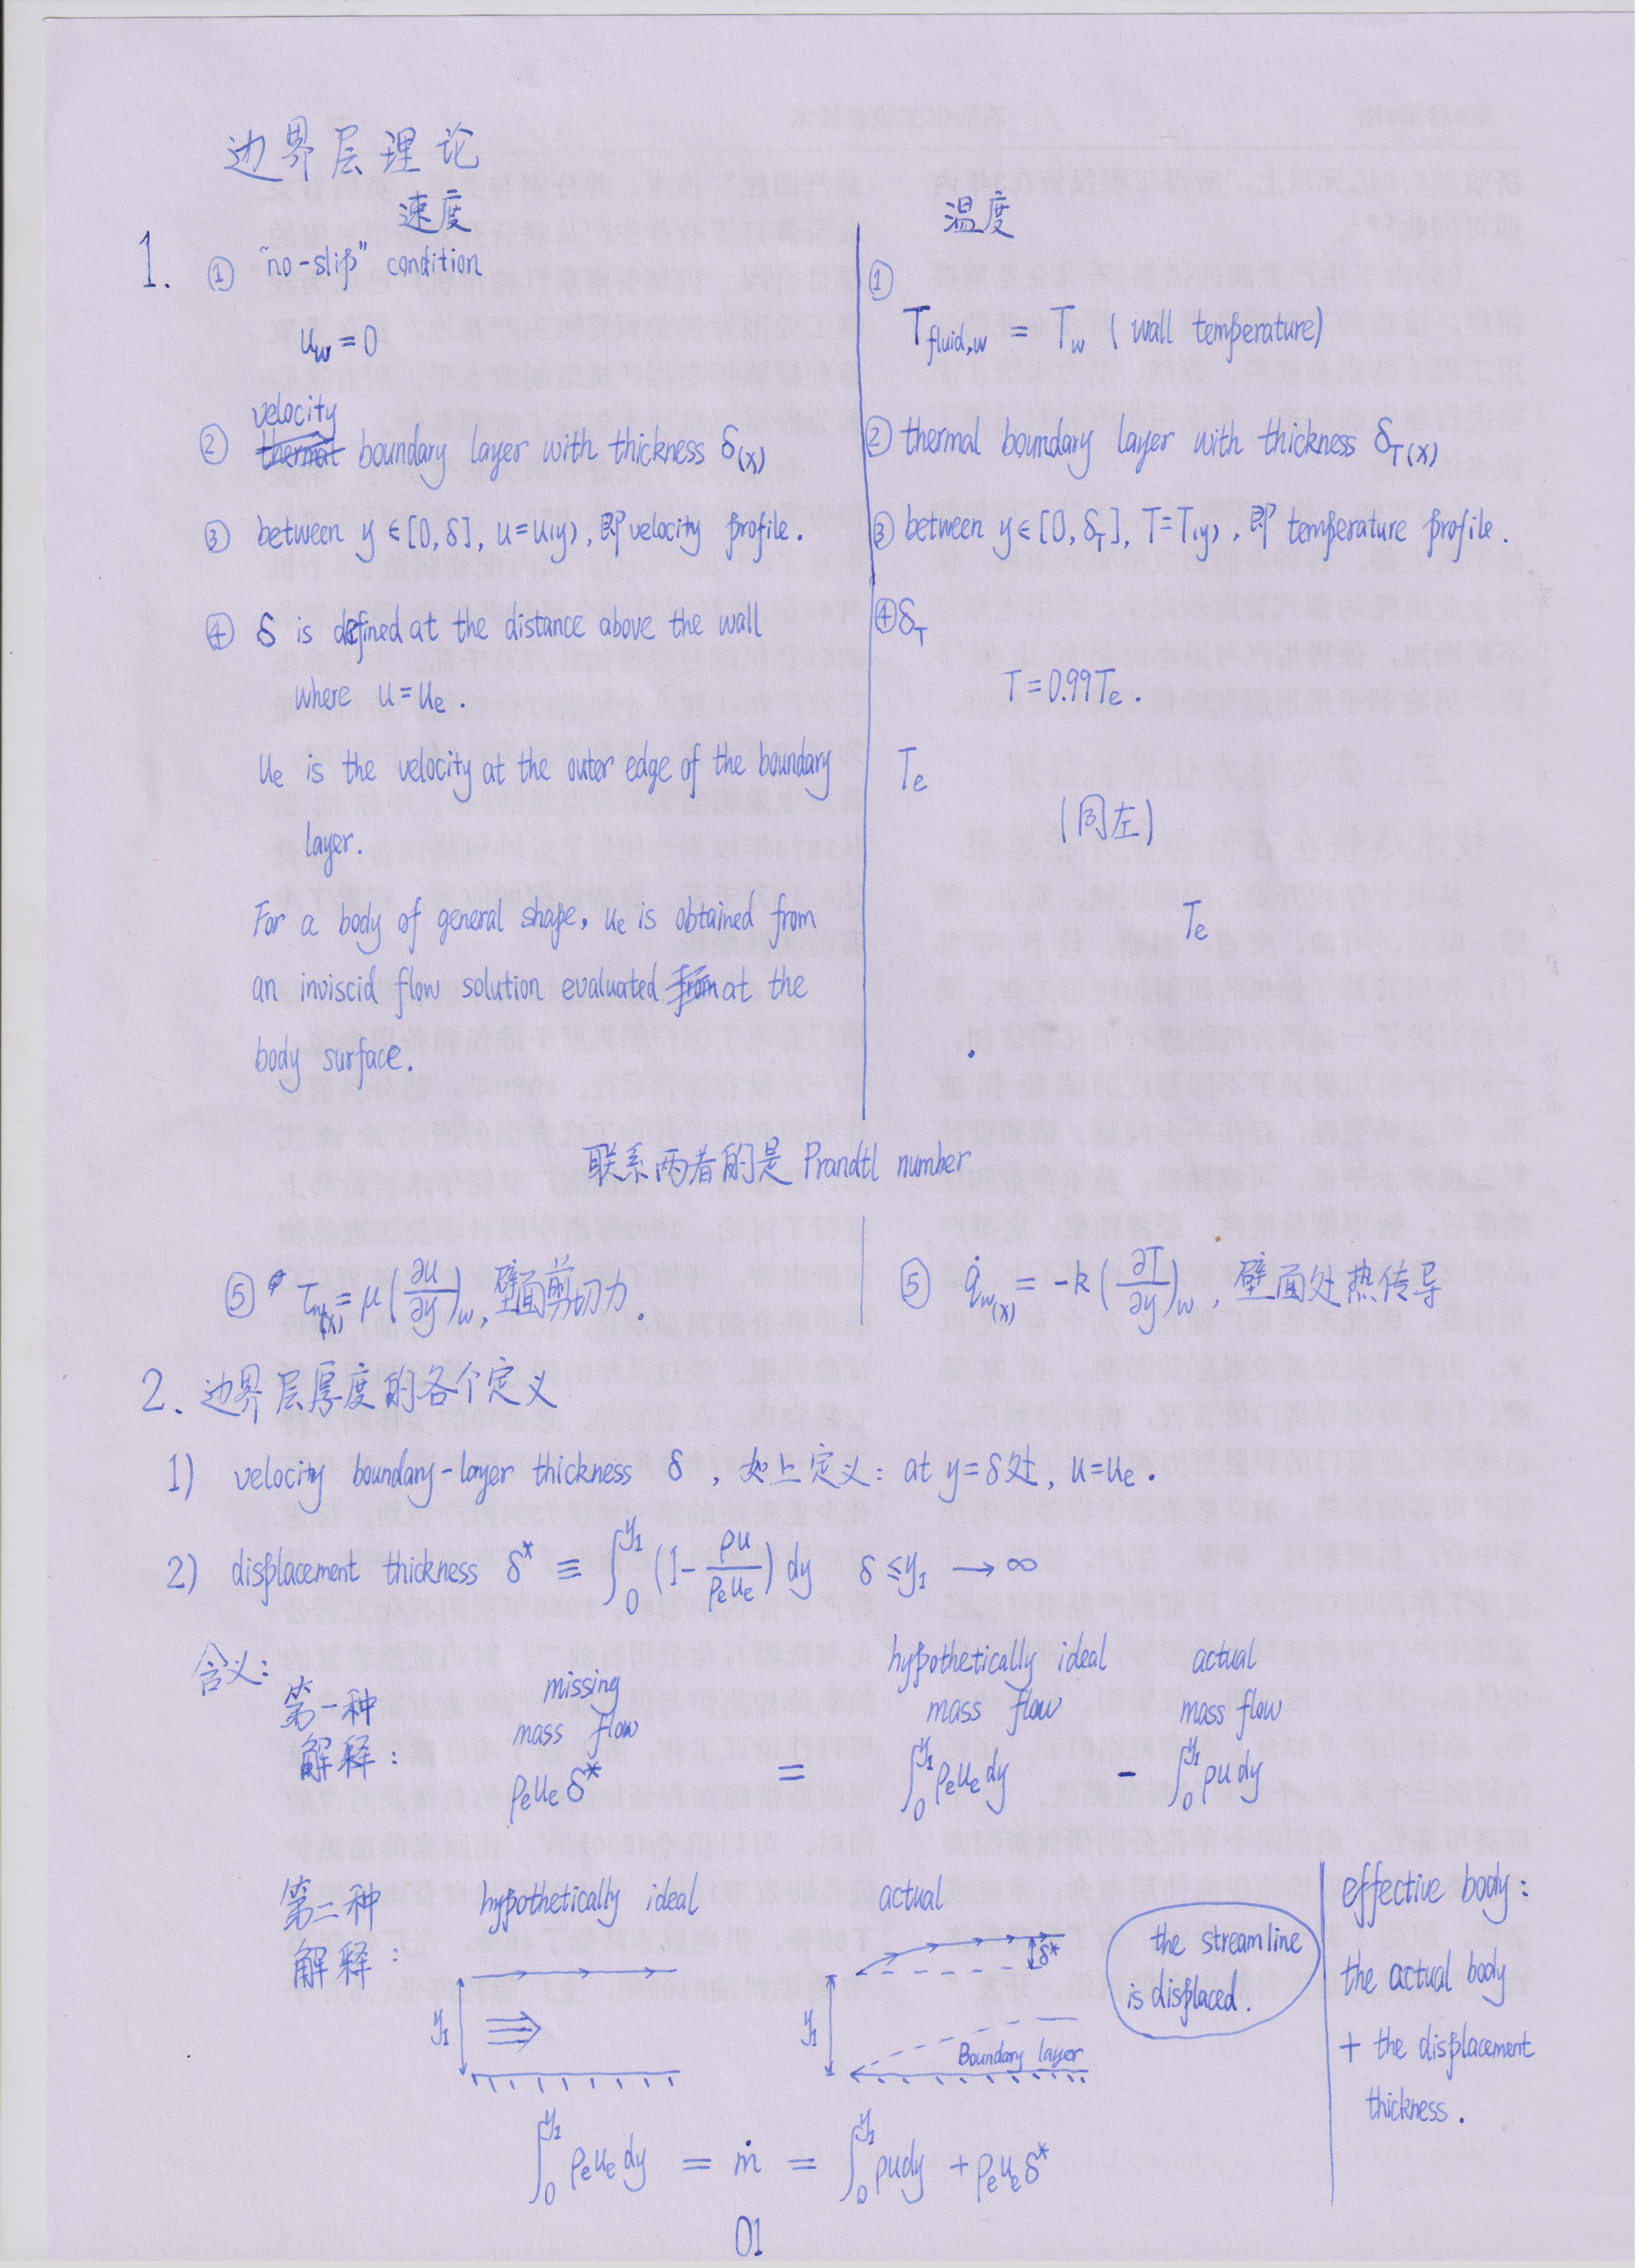 边界层理论
速度
1. ① "no-slip" condition
u_w = 0
velocity
② thermal boundary layer with thickness δ(x)
③ between y ∈ [0, δ], u = u(y), 即 velocity profile.
④ δ is defined at the distance above the wall
where u = u_e.
u_e is the velocity at the outer edge of the boundary
layer.
For a body of general shape, u_e is obtained from
an inviscid flow solution evaluated from at the
body surface.
温度
①
T_fluid,w = T_w ( wall temperature)
② thermal boundary layer with thickness δ_T(x)
③ between y ∈ [0, δ_T], T = T(y), 即 temperature profile.
④ δ_T
T = 0.99T_e.
T_e
(同左)
T_e
联系两者的是 Prandtl number
⑤ τ_w(x) = μ(∂u/∂y)_w, 壁面剪切力.
⑤ q̇_w(x) = -k(∂T/∂y)_w, 壁面处热传导
2. 边界层厚度的各个定义
1) velocity boundary-layer thickness δ, 如上定义: at y=δ处, u=u_e.
2) displacement thickness δ* ≡ ∫_0^{y_1} (1 - ρu/ρ_e u_e) dy δ ≤ y_1 → ∞
含义:
第一种
解释:
missing
mass flow
ρ_e u_e δ*
=
hypothetically ideal
mass flow
∫_0^{y_1} ρ_e u_e dy
-
actual
mass flow
∫_0^{y_1} ρu dy
第二种
解释:
hypothetically ideal
y_1
actual
δ*
y_1
Boundary layer
the streamline
is displaced.
effective body:
the actual body
+ the displacement
thickness.
∫_0^{y_1} ρ_e u_e dy = ṁ = ∫_0^{y_1} ρu dy + ρ_e u_e δ*
01